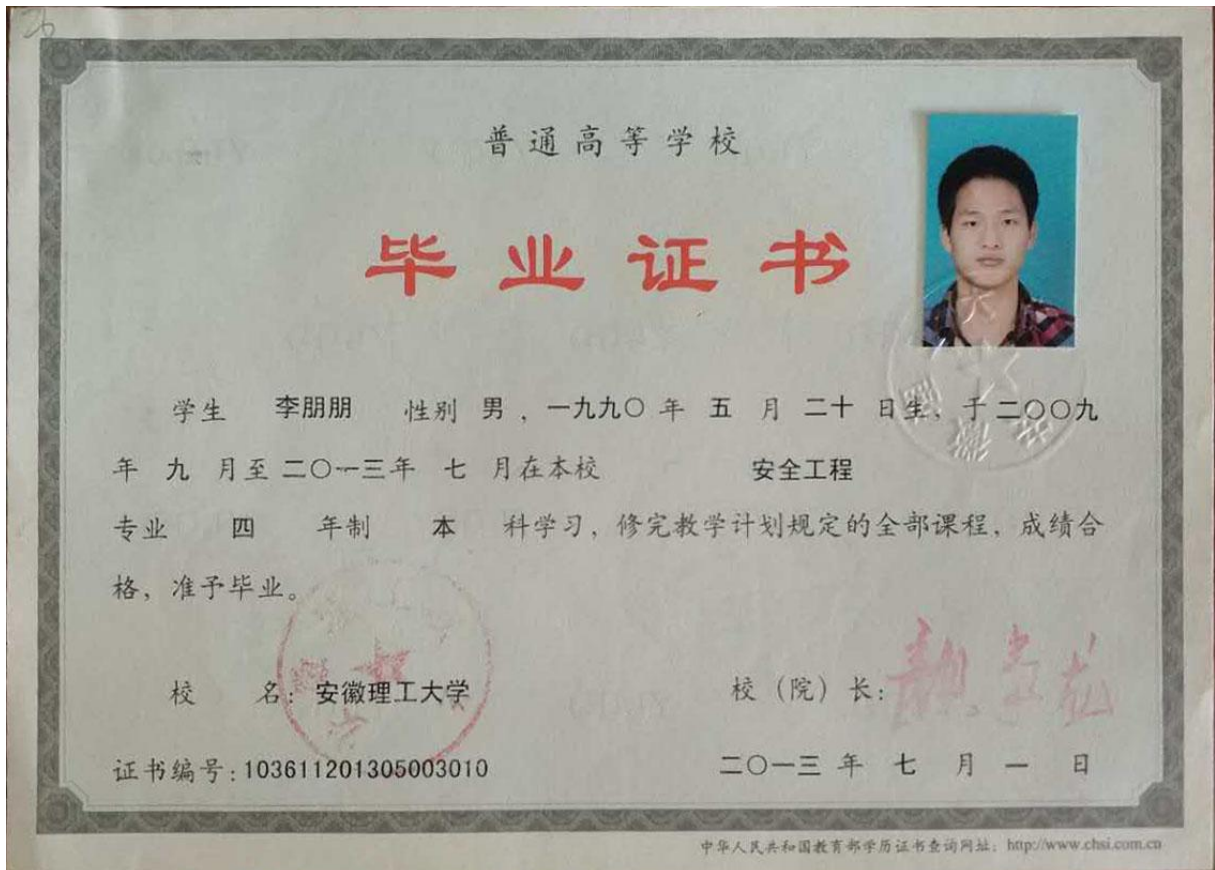 26
普通高等学校
毕业证书
学生 李朋朋 性别 男，一九九〇年 五 月 二十 日生，于二〇〇九
年 九 月至二〇一三年 七 月在本校 安全工程
专业 四 年制 本 科学习，修完教学计划规定的全部课程，成绩合
格，准予毕业。
校 名：安徽理工大学
校（院）长：
证书编号：103611201305003010
二〇一三 年 七 月 一 日
中华人民共和国教育部学历证书查询网址：http://www.chsi.com.cn